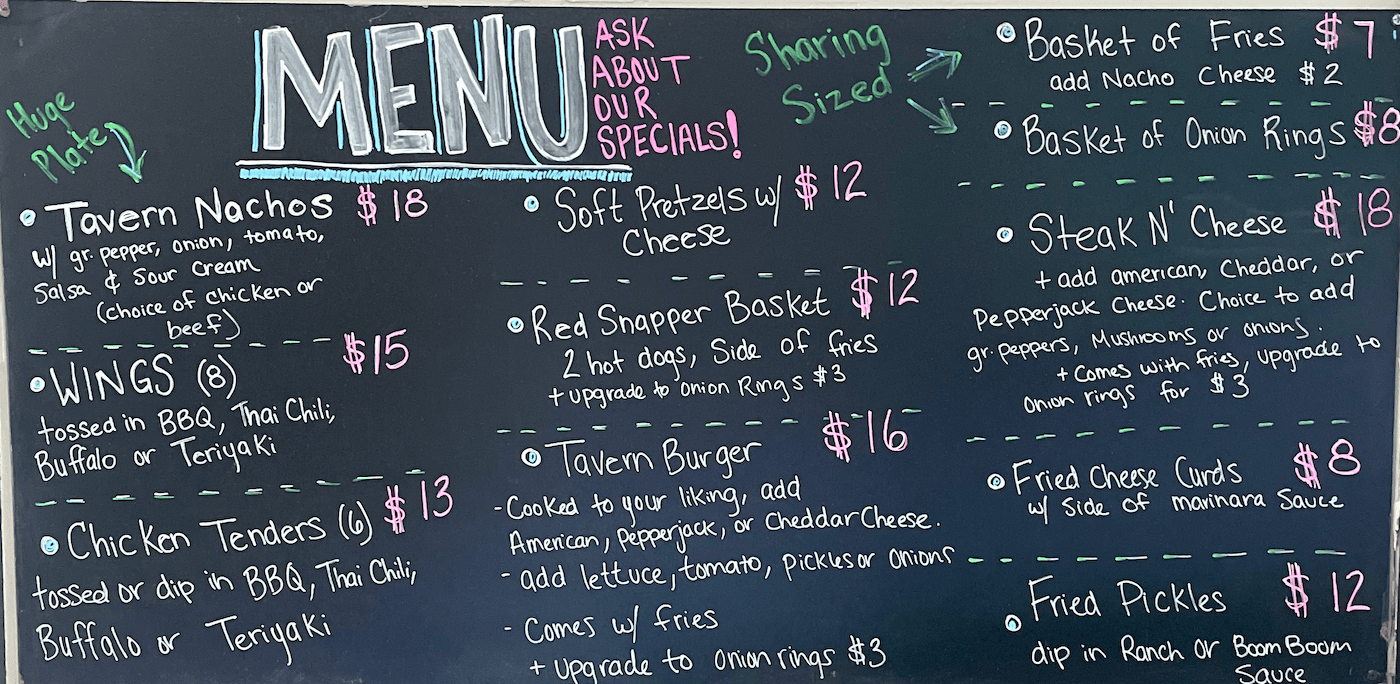 MENU
ASK
ABOUT
OUR
SPECIALS!
Huge
Plate
Tavern Nachos $18
w/ gr. pepper, onion, tomato,
Salsa & Sour Cream
(choice of chicken or
beef)
WINGS (8) $15
tossed in BBQ, Thai Chili,
Buffalo or Teriyaki
Chicken Tenders (6) $13
tossed or dip in BBQ, Thai Chili,
Buffalo or Teriyaki
Soft Pretzels w/ $12
Cheese
Red Snapper Basket $12
2 hot dogs, Side of fries
+ upgrade to Onion Rings $3
Tavern Burger $16
- Cooked to your liking, add
American, Pepperjack, or Cheddar Cheese.
- add lettuce, tomato, pickles or onions
- Comes w/ fries
+ upgrade to onion rings $3
Sharing
Sized
Basket of Fries $7
add Nacho Cheese $2
Basket of Onion Rings $8
Steak N' Cheese $18
+ add american, Cheddar, or
Pepperjack Cheese. Choice to add
gr. peppers, Mushrooms or onions.
+ Comes with fries, upgrade to
onion rings for $3
Fried Cheese Curds $8
w/ Side of marinara Sauce
Fried Pickles $12
dip in Ranch or Boom Boom
Sauce